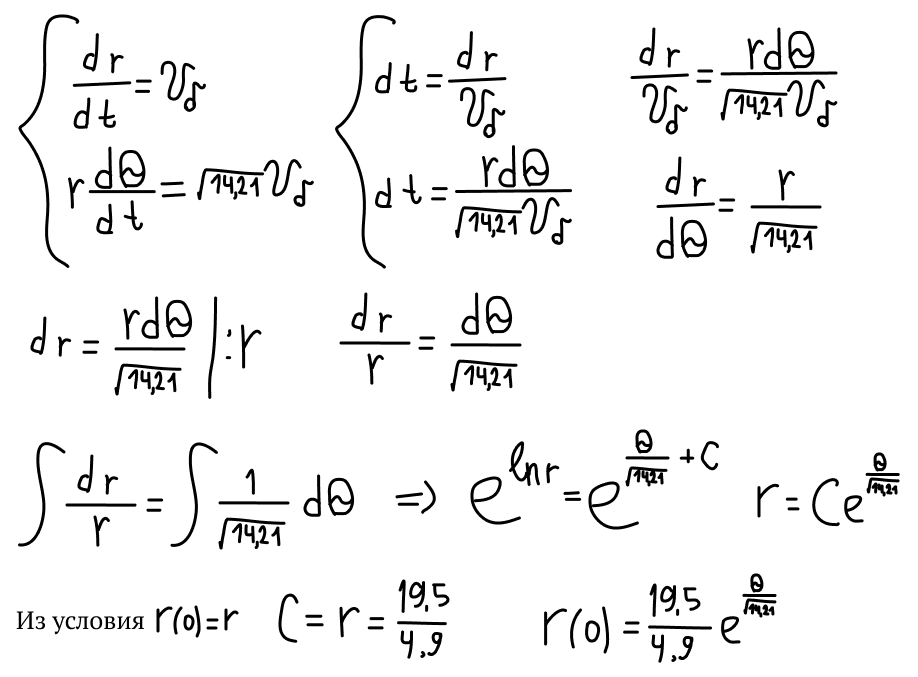 { dr/dt = v_δ    { dt = dr/v_δ    dr/v_δ = rdΘ/(√14,21 v_δ)
r dΘ/dt = √14,21 v_δ    dt = rdΘ/(√14,21 v_δ)    dr/dΘ = r/√14,21
dr = rdΘ/√14,21 | :r    dr/r = dΘ/√14,21
∫ dr/r = ∫ 1/√14,21 dΘ => e^(ln r) = e^(Θ/√14,21 + C)    r = Ce^(Θ/√14,21)
Из условия r(0)=r    C = r = 19,5/4,9    r(0) = 19,5/4,9 e^(Θ/√14,21)